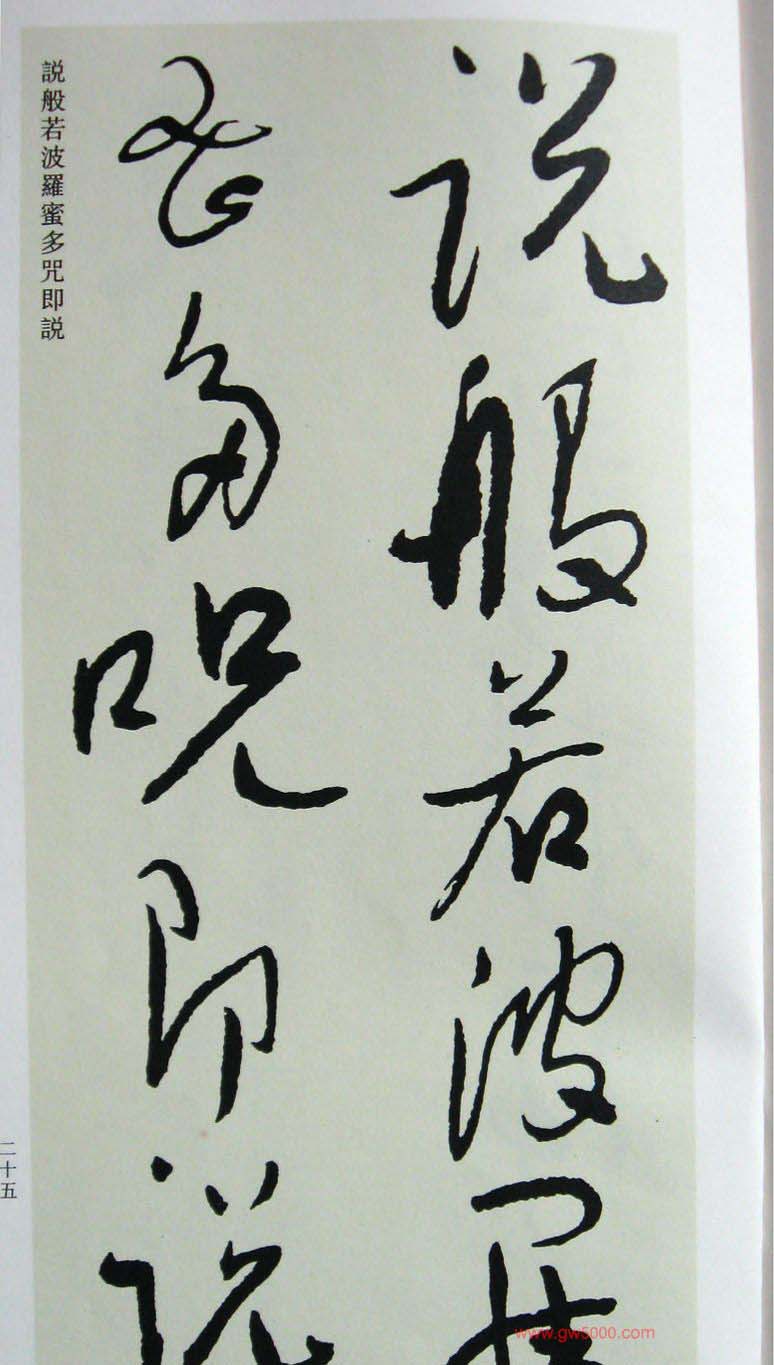 説般若波羅
蜜多咒即説
説般若波羅蜜多咒即説
二十五
www.gw5000.com